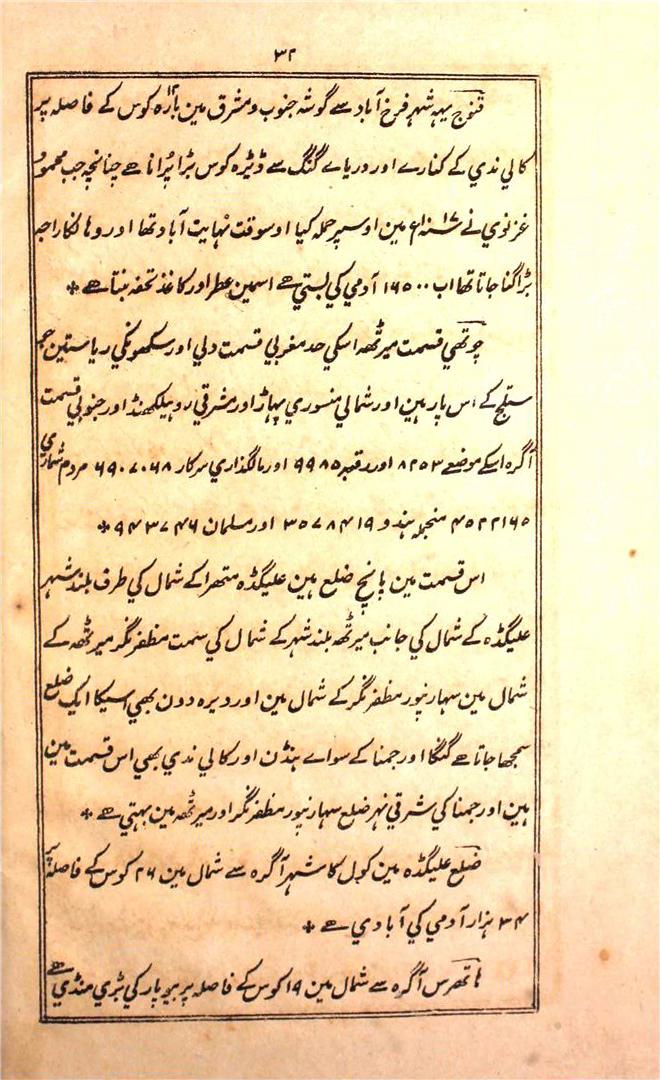 ۳۲
قنوج یہہ شہر فرخ آباد سے گوشہ جنوب و مشرق مین بارہ ۱۲ کوس کے فاصلہ پر
کالي ندي کے کنارے اور دریاے گنگ سے ڈیڑہ کوس بڑا پُرانا ہے چنانچہ جب محمود
غزنوي نے ۱۰۱۷ء مین اوسپر حملہ کیا اوسوقت نہایت آباد تھا اور وہانکا راجہ
بڑا گنا جاتا تھا اب ۱۶۵۰۰ آدمي کي بستي ہے اسمین عطر اور کاغذ تحفہ بنتا ہے *
چوتھي قسمت میرٹھہ اسکي حد مغربي قسمت دلي اور سکھونکي ریاستین جو
ستلج کے اس پار ہین اور شمالي منسوري پہاڑ اور مشرقي روہیلکھنڈ اور جنوبي قسمت
آگرہ اسکے موضعے ۸۲۵۳ اور رقبہ ۹۹۸۵ اور مالگذاري سرکار ۶۹۰۷۰۶۸ مردم شماري
۴۵۲۲۱۶۵ منجملہ ہندو ۳۵۷۸۴۱۹ اور مسلمان ۹۴۳۷۴۶ *
اس قسمت مین پانچ ضلع ہین علیگڈہ متھرا کے شمال کي طرف بلند شہر
علیگڈہ کے شمال کي جانب میرٹھہ بلند شہر کے شمال کي سمت مظفر نگر میرٹھہ کے
شمال مین سہارنپور مظفر نگر کے شمال مین اور دیرہ دون بھي اسیکا ایک ضلع
سمجھا جاتا ہے گنگا اور جمنا کے سواے ہنڈن اور کالي ندي بھي اس قسمت مین
ہین اور جمنا کي شرقي نہر ضلع سہارنپور مظفر نگر اور میرٹھہ مین بہتي ہے *
ضلع علیگڈہ مین کول کا شہر آگرہ سے شمال مین ۲۶ کوس کے فاصلہ پر
۳۴ ہزار آدمي کي آبادي ہے *
ہاتھرس آگرہ سے شمال مین ۱۹ کوس کے فاصلہ پر بیوپار کي بڑي منڈي ہے